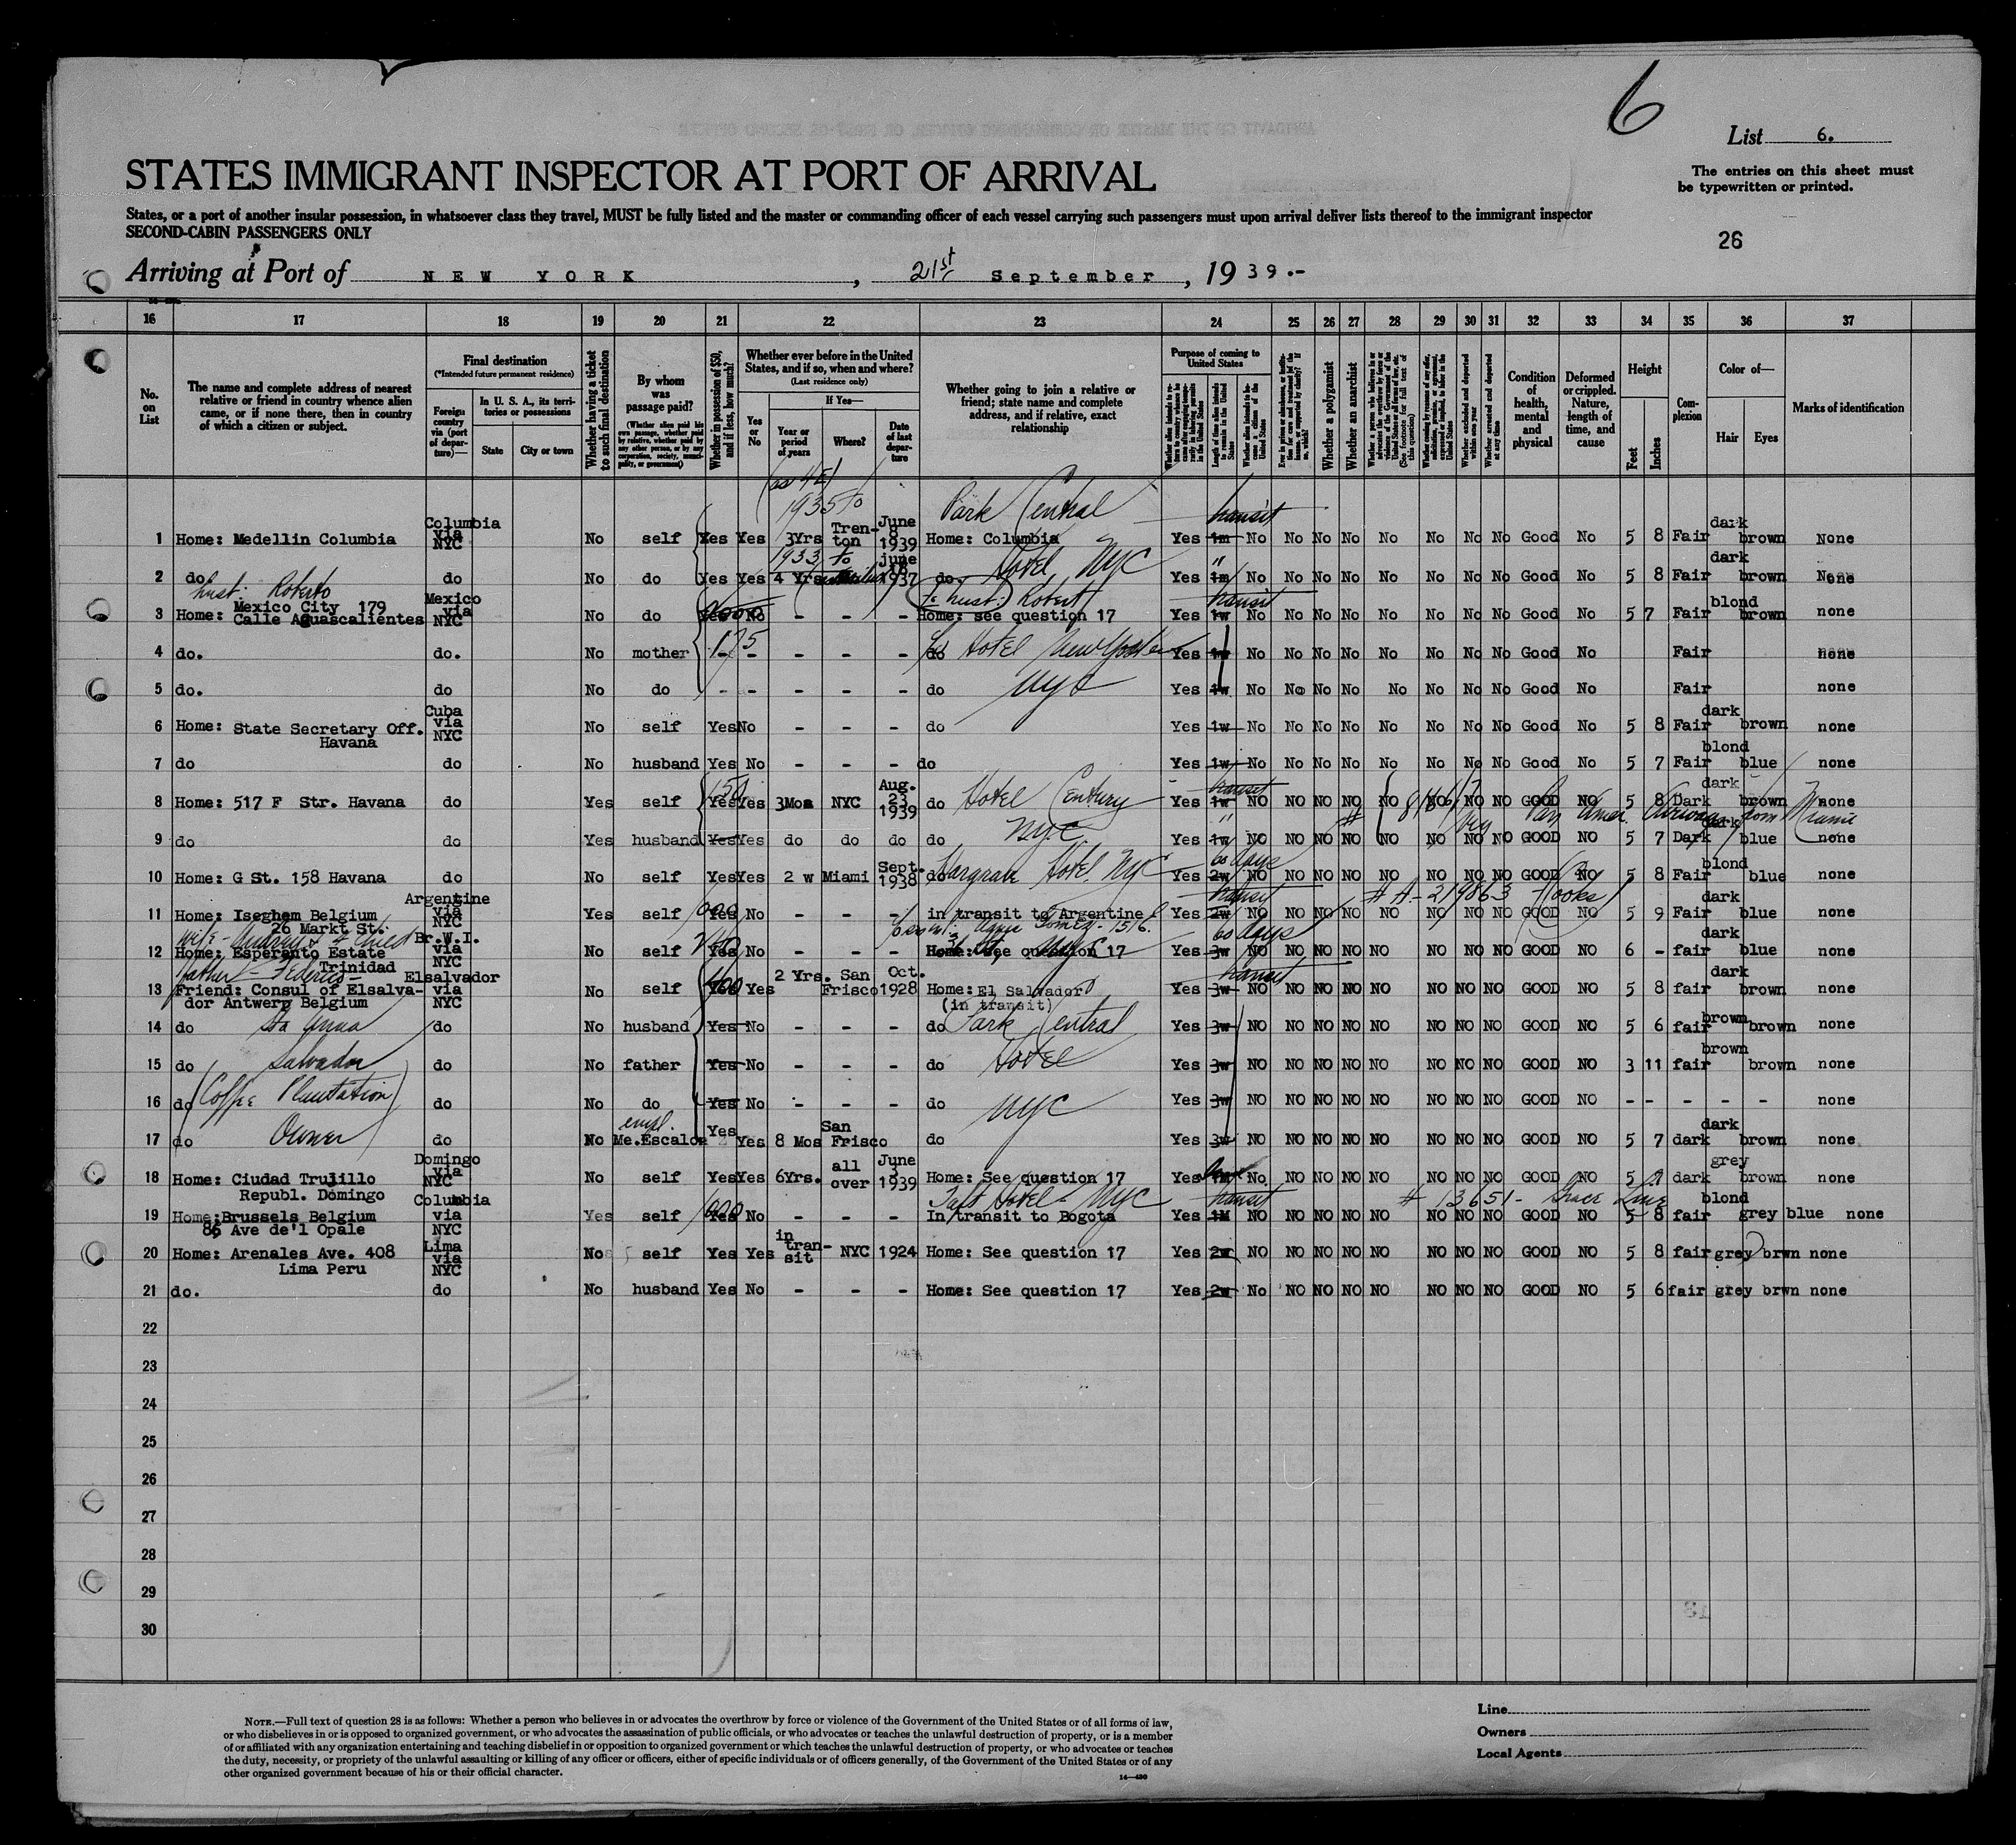 6
List 6.
STATES IMMIGRANT INSPECTOR AT PORT OF ARRIVAL
The entries on this sheet must
be typewritten or printed.
States, or a port of another insular possession, in whatsoever class they travel, MUST be fully listed and the master or commanding officer of each vessel carrying such passengers must upon arrival deliver lists thereof to the immigrant inspector
SECOND-CABIN PASSENGERS ONLY
26
Arriving at Port of NEW YORK, 21st September, 1939.-
16 17 18 19 20 21 22 23 24 25 26 27 28 29 30 31 32 33 34 35 36 37
No. on List
The name and complete address of nearest relative or friend in country whence alien came, or if none there, then in country of which a citizen or subject.
Final destination
(*Intended future permanent residence)
Foreign country via (port of departure)—
In U. S. A., its territories or possessions
State
City or town
Whether having a ticket to such final destination
By whom was passage paid?
(Whether alien paid his own passage, whether paid by relative, whether paid by any other person, or by any corporation, society, municipality, or government)
Whether in possession of $50, and if less, how much?
Whether ever before in the United States, and if so, when and where?
(Last residence only)
Yes or No
If Yes—
Year or period of years
Where?
Date of last departure
Whether going to join a relative or friend; state name and complete address, and if relative, exact relationship
Purpose of coming to United States
Length of time alien intends to remain in the United States
Whether alien intends to become a citizen of the United States
Whether a polygamist
Whether an anarchist
Whether excluded and deported within one year
Whether arrested and deported at any time
Condition of health, mental and physical
Deformed or crippled. Nature, length of time, and cause
Height
Feet
Inches
Complexion
Color of—
Hair
Eyes
Marks of identification
1935 to
Park Central
transit
1 Home: Medellin Columbia Columbia via NYC No self Yes Yes 3Yrs Trenton June 8 1939 Home: Columbia Yes 1m No No No No No No No No Good No 5 8 Fair dark brown None
1933 to
Hotel NYC
2 do do No do Yes Yes 4 Yrs june 18 1937 do. Yes 1m No No No No No No No No Good No 5 8 Fair dark brown None
hust: Roberto
hust: Robert
transit
3 Home: Mexico City 179 Calle Aguascalientes Mexico via NYC No do Yes No - - - Home: see question 17 Yes 1w No No No No No No No No Good No 5 7 Fair blond brown none
175
Hotel New Yorker
4 do. do. No mother - - - - - do Yes 1w No No No No No No No No Good No Fair none
NYC
5 do. do No do - - - - - do Yes 1w No No No No No No No No Good No Fair none
6 Home: State Secretary Off. Havana Cuba via NYC No self Yes No - - - do Yes 1w No No No No No No No No Good No 5 8 Fair dark brown none
7 do do No husband Yes No - - - do Yes 1w No No No No No No No No Good No 5 7 Fair blond blue none
150
Hotel Century
transit
8 Home: 517 F Str. Havana do Yes self Yes Yes 3Mos NYC Aug. 23 1939 do Yes 1w NO NO NO NO NO NO NO NO GOOD NO 5 8 Dark dark brown none
NYC
Pan Amer. Airways from Miami
9 do do Yes husband Yes Yes do do do do Yes 1w NO NO NO NO NO NO NO NO GOOD NO 5 7 Dark dark blue none
Hotel NYC
60 days
10 Home: G St. 158 Havana do No self Yes Yes 2 w Miami Sept. 1938 do Yes 2w NO NO NO NO NO NO NO NO GOOD NO 5 8 Fair blond blue none
transit
# A-219863 (Cooks)
11 Home: Iseghem Belgium 26 Markt St. Argentine via NYC Yes self Yes No - - - in transit to Argentine Yes 2w NO NO NO NO NO NO NO NO GOOD NO 5 9 Fair dark blue none
60 days
12 Home: Esperanto Estate Trinidad Br.W.I. via NYC No self Yes No - - - Home: See question 17 Yes 3w NO NO NO NO NO NO NO NO GOOD NO 6 - fair dark blue none
father - Federico -
transit
13 Friend: Consul of Elsalvador Antwerp Belgium Elsalvador via NYC No self Yes Yes 2 Yrs. San Frisco Oct. 1928 Home: El Salvador (in transit) Yes 3w NO NO NO NO NO NO NO NO GOOD NO 5 8 fair dark brown none
Sta Anna
Park Central
14 do do No husband Yes No - - - do Yes 3w NO NO NO NO NO NO NO NO GOOD NO 5 6 fair brown brown none
Salvador
Hotel
15 do do No father Yes No - - - do Yes 3w NO NO NO NO NO NO NO NO GOOD NO 3 11 fair brown brown none
(Coffee Plantation
NYC
16 do do No do Yes No - - - do Yes 3w NO NO NO NO NO NO NO NO GOOD NO - - - - - none
Owner)
empl.
17 do do No Me.Escalon Yes Yes 8 Mos San Frisco do Yes 3w NO NO NO NO NO NO NO NO GOOD NO 5 7 dark dark brown none
18 Home: Ciudad Trujillo Republ. Domingo Domingo via NYC No self Yes Yes 6Yrs. all over June 3 1939 Home: See question 17 Yes 1M No NO NO NO NO NO NO NO GOOD NO 5 dark grey brown none
1000
Taft Hotel - NYC
transit
# 13651 - Grace Line
19 Home: Brussels Belgium 86 Ave de'l Opale Columbia via NYC Yes self Yes No - - - In transit to Bogota Yes 1M NO NO NO NO NO NO NO NO GOOD NO 5 8 fair blond grey blue none
20 Home: Arenales Ave. 408 Lima Peru Lima via NYC No self Yes Yes in transit NYC 1924 Home: See question 17 Yes 2w NO NO NO NO NO NO NO NO GOOD NO 5 8 fair grey brwn none
21 do. do No husband Yes No - - - Home: See question 17 Yes 2w No NO NO NO NO NO NO NO GOOD NO 5 6 fair grey brwn none
22
23
24
25
26
27
28
29
30
NOTE.—Full text of question 28 is as follows: Whether a person who believes in or advocates the overthrow by force or violence of the Government of the United States or of all forms of law,
or who disbelieves in or is opposed to organized government, or who advocates the assassination of public officials, or who advocates or teaches the unlawful destruction of property, or is a member
of or affiliated with any organization entertaining and teaching disbelief in or opposition to organized government or which teaches the unlawful destruction of property, or who advocates or teaches
the duty, necessity, or propriety of the unlawful assaulting or killing of any officer or officers, either of specific individuals or of officers generally, of the Government of the United States or of any
other organized government because of his or their official character.
14—430
Line
Owners
Local Agents